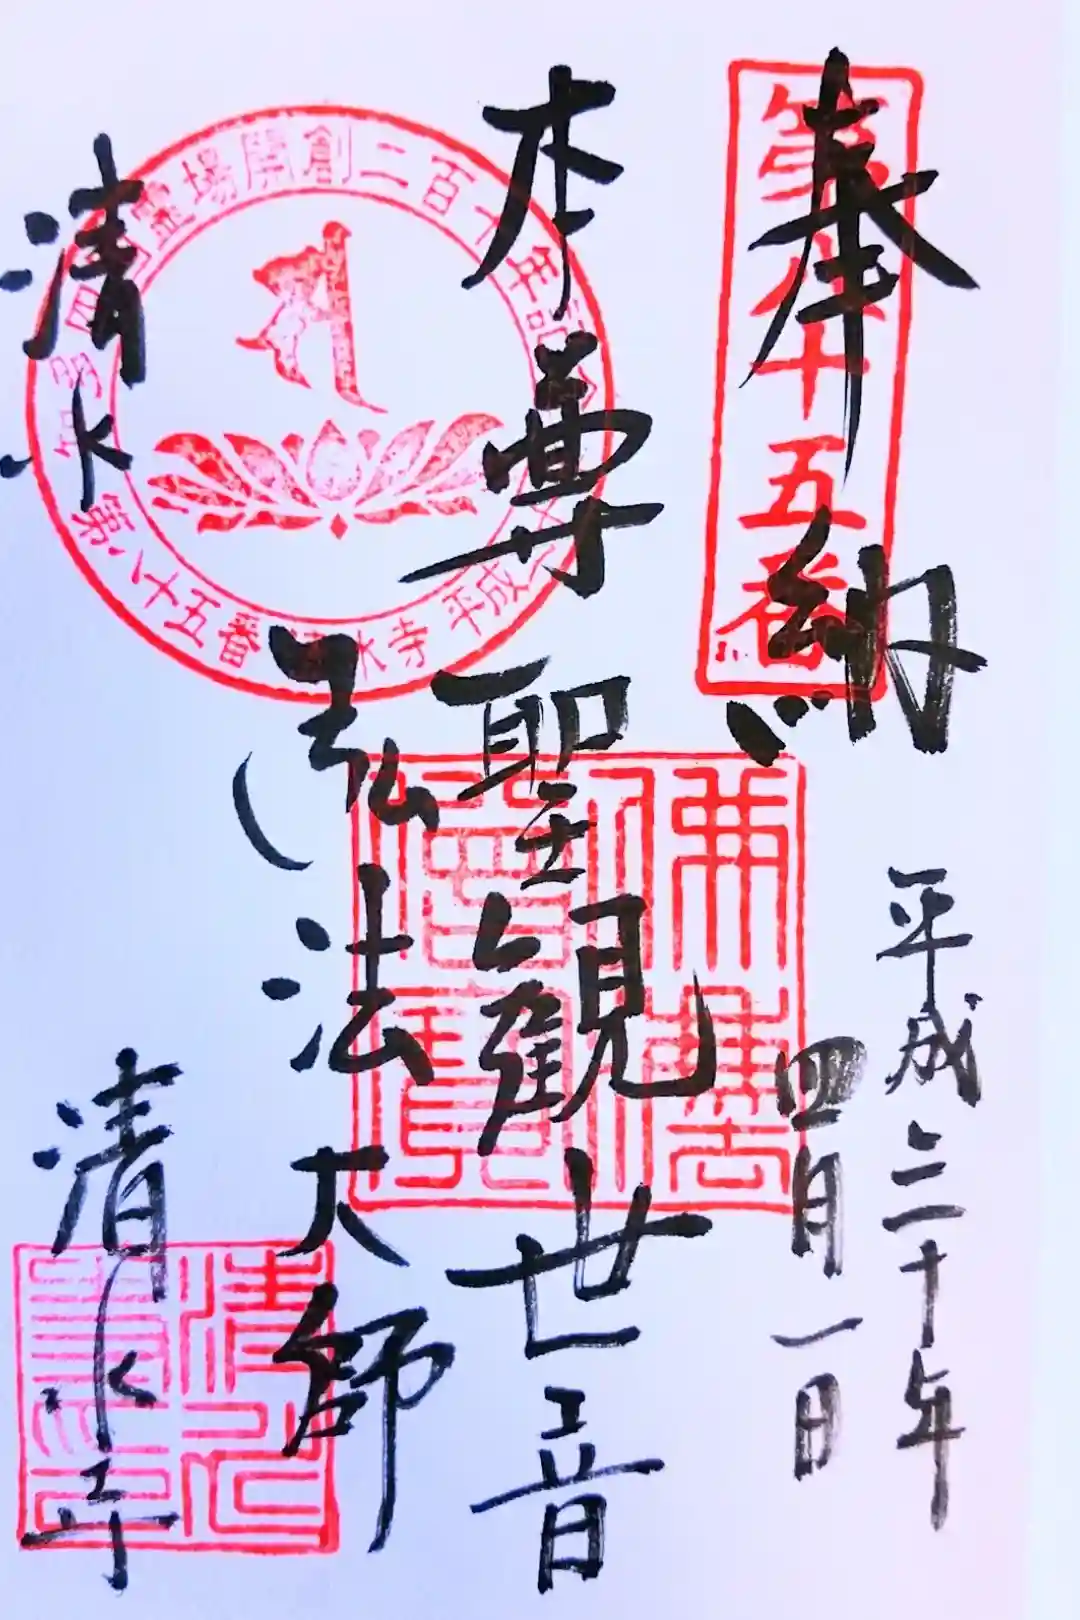 奉納
平成三十年
四月一日
第八十五番
本尊聖觀世音
弘法大師
清水
清水寺
知多四国霊場開創二百十年記念
第八十五番 清水寺 平成
佛法僧寶